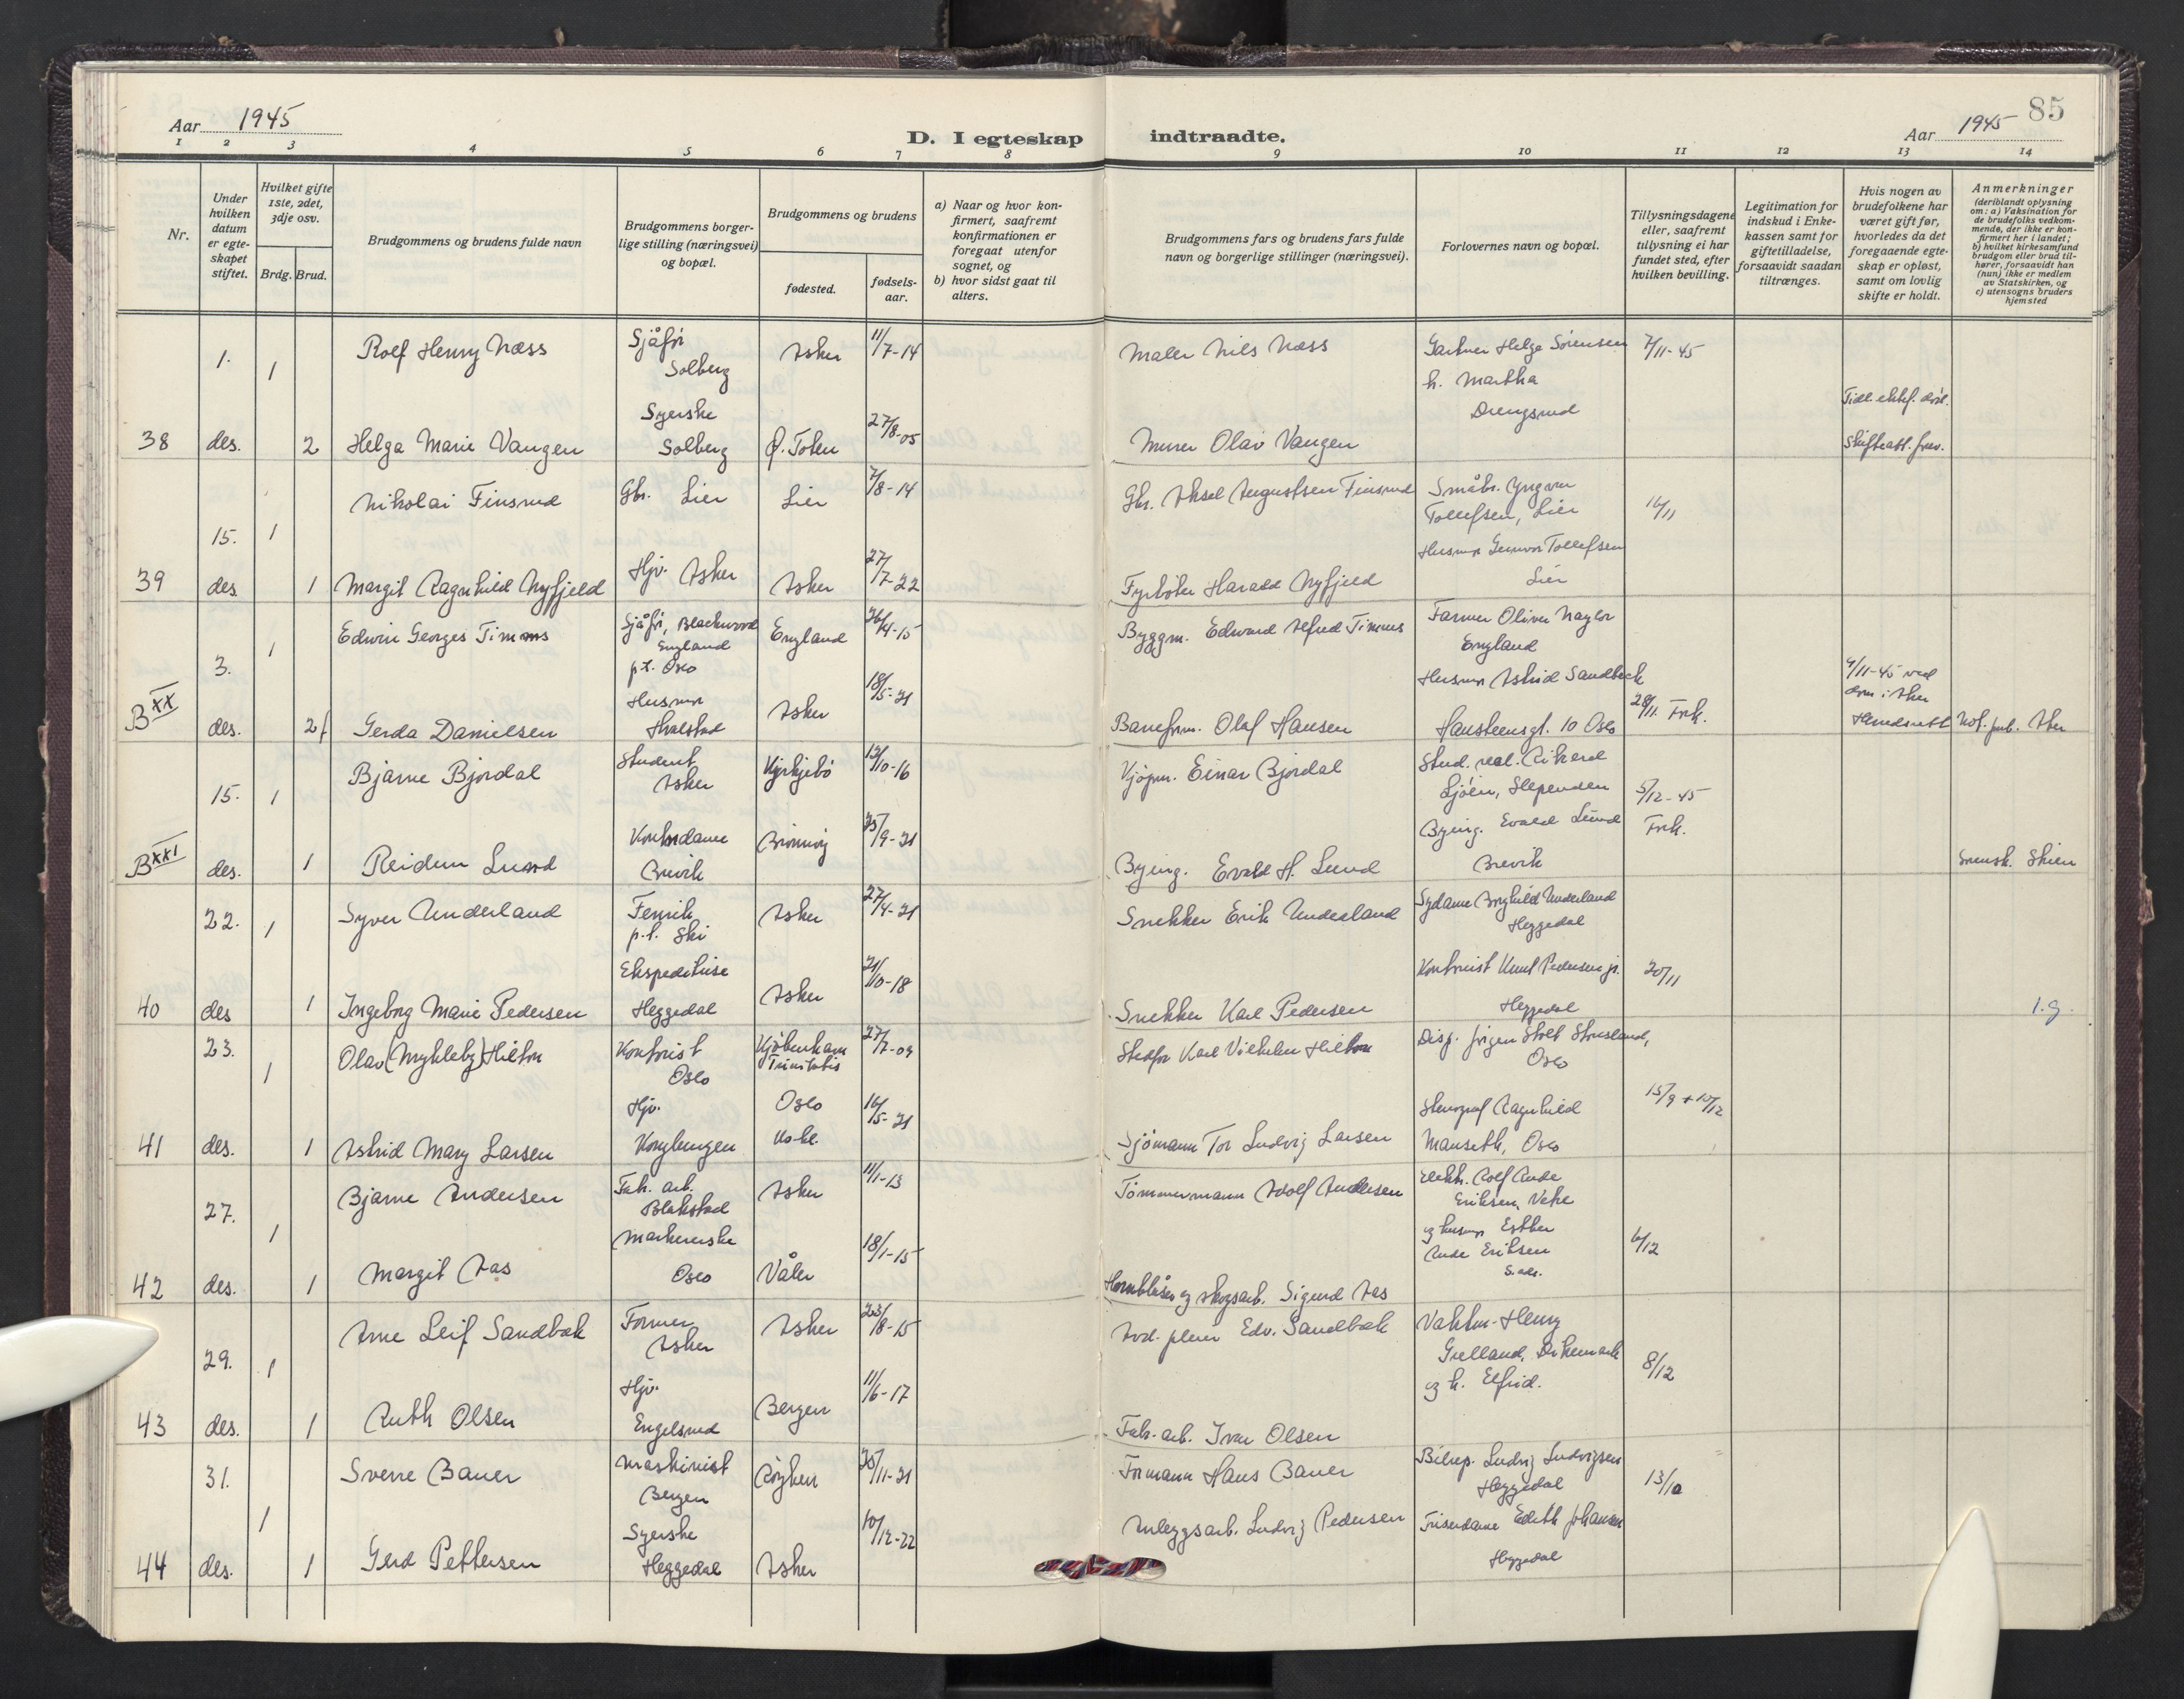 Aar 1945
D. I egteskap indtraadte.
Aar 1945
85
1 2 3 4 5 6 7 8 9 10 11 12 13 14
Nr.
Under hvilken datum er egte-skapet stiftet.
Hvilket gifte 1ste, 2det, 3dje osv.
Brdg. Brud.
Brudgommens og brudens fulde navn
Brudgommens borger-lige stilling (næringsvei) og bopæl.
Brudgommens og brudens
fødested.
fødsels-aar.
a) Naar og hvor kon-firmert, saafremt konfirmationen er foregaat utenfor sognet, og
b) hvor sidst gaat til alters.
Brudgommens fars og brudens fars fulde navn og borgerlige stillinger (næringsvei).
Forlovernes navn og bopæl.
Tillysningsdagene eller, saafremt tillysning ei har fundet sted, efter hvilken bevilling.
Legitimation for indskud i Enke-kassen samt for giftetilladelse, forsaavidt saadan tiltrænges.
Hvis nogen av brudefolkene har været gift før, hvorledes da det foregaaende egte-skap er opløst, samt om lovlig skifte er holdt.
Anmerkninger (deriblandt oplysning om: a) Vaksination for de brudefolks vedkom-mende, der ikke er kon-firmert her i landet; b) hvilket kirkesamfund brudgom eller brud til-hører, forsaavidt han (hun) ikke er medlem av Statskirken, og c) utensogns bruders hjemsted
1. 1 Rolf Henry Næss Sjåfør Solberg Asker 11/7-14 Maler Nils Næss Gartner Helge Sørensen 7/11-45
h. Martha
Drengsrud
38 des. 2 Helga Marie Vangen Syerske Solberg Ø. Toten 27/8-05 Murer Olav Vangen Skifteatt. frev.
15. 1 Nikolai Finsrud Gbr. Lier Lier 7/8-14 Gbr. Aksel Augustsen Finsrud Småbr. Yngvar
Tollefsen, Lier 16/11
Husmor Gunvor Tollefsen
39 des 1 Margit Ragnhild Nyfjeld Hjv. Asker Asker 27/7-22 Fyrbøter Harald Nyfjeld Lier
3. 1 Edwin Georges Timms Sjåfør, Blackwood England p.t. Oslo England 26/4-15 Byggm. Edward Alfred Timms Farmer Oliver Naylor
England
Husmor Astrid Sandbeck
BXX des. 2f Gerda Danielsen Husmor Hvalstad Asker 18/5-21 Baneform. Olaf Hansen Hansteensgt. 10 Oslo 28/11. Frk. 9/11-45 ved dom i Aker Herredsrett Not. pub. Aker
15. 1 Bjarne Bjordal Student Asker Kyrkjebø 12/10-16 Kjøpm. Einar Bjordal Stud. real. Rikard
Sjøen, Slependen 5/12-45
BXXI des. 1 Reidun Lund Kontordame Brevik 25/9-21 Bying. Evald H. Lund Bying. Evald Lund Frk.
Brevik Sorensk. Skien
22. 1 Syver Underland Fenrik p.t. Ski Asker 27/4-21 Snekker Erik Underland Sydame Borghild Underland
Heggedal
40 des 1 Ingeborg Marie Pedersen Ekspeditrise Heggedal Asker 21/10-18 Snekker Karl Pedersen Kontorist Knut Pedersen jr. 20/11
Heggedal 1.g.
23. 1 Olav (Mykleby) Hilton Kontorist Oslo Kjøbenham Trinitatis 27/7-09 Karl Vilhelm Hilton Disp. Jørgen Stolt
Oslo
41 des. 1 Astrid Mary Larsen Hjv. Konglungen Oslo 16/5-21 Sjømann Tor Ludvig Larsen Stenograf Ragnhild 15/9 + 10/12
Manseth, Oslo
27. 1 Bjarne Andersen Fab. arb. Blakstad Asker 11/1-13 Tømmermann Adolf Andersen Elektr. Rolf Aude
Eriksen, Vake
og husmor Esther
Aude Eriksen 6/12
S. ads.
42 des. 1 Margit Aas Oslo Våler 18/1-15 Hornblåser og skogsarb. Sigurd Aas
29. 1 Arne Leif Sandbæk Former Asker Asker 23/8-15 Avd. pleier Edv. Sandbæk Vaktm. Henry
Grelland, Dikemark 8/12
og h. Elfrid.
43 des. 1 Ruth Olsen Hjv. Engelsrud Bergen 11/6-17 Fab. arb. Ivar Olsen
31. 1 Sverre Bauer Maskinist Bergen Røyken 25/11-21 Formann Hans Bauer Bilrep. Ludvig Ludvigsen
Heggedal 13/10
44 des. 1 Gerd Pettersen Syerske Heggedal Asker 10/12-22 Anleggsarb. Ludvig Pedersen Frisørdame Edith Johansen
Heggedal